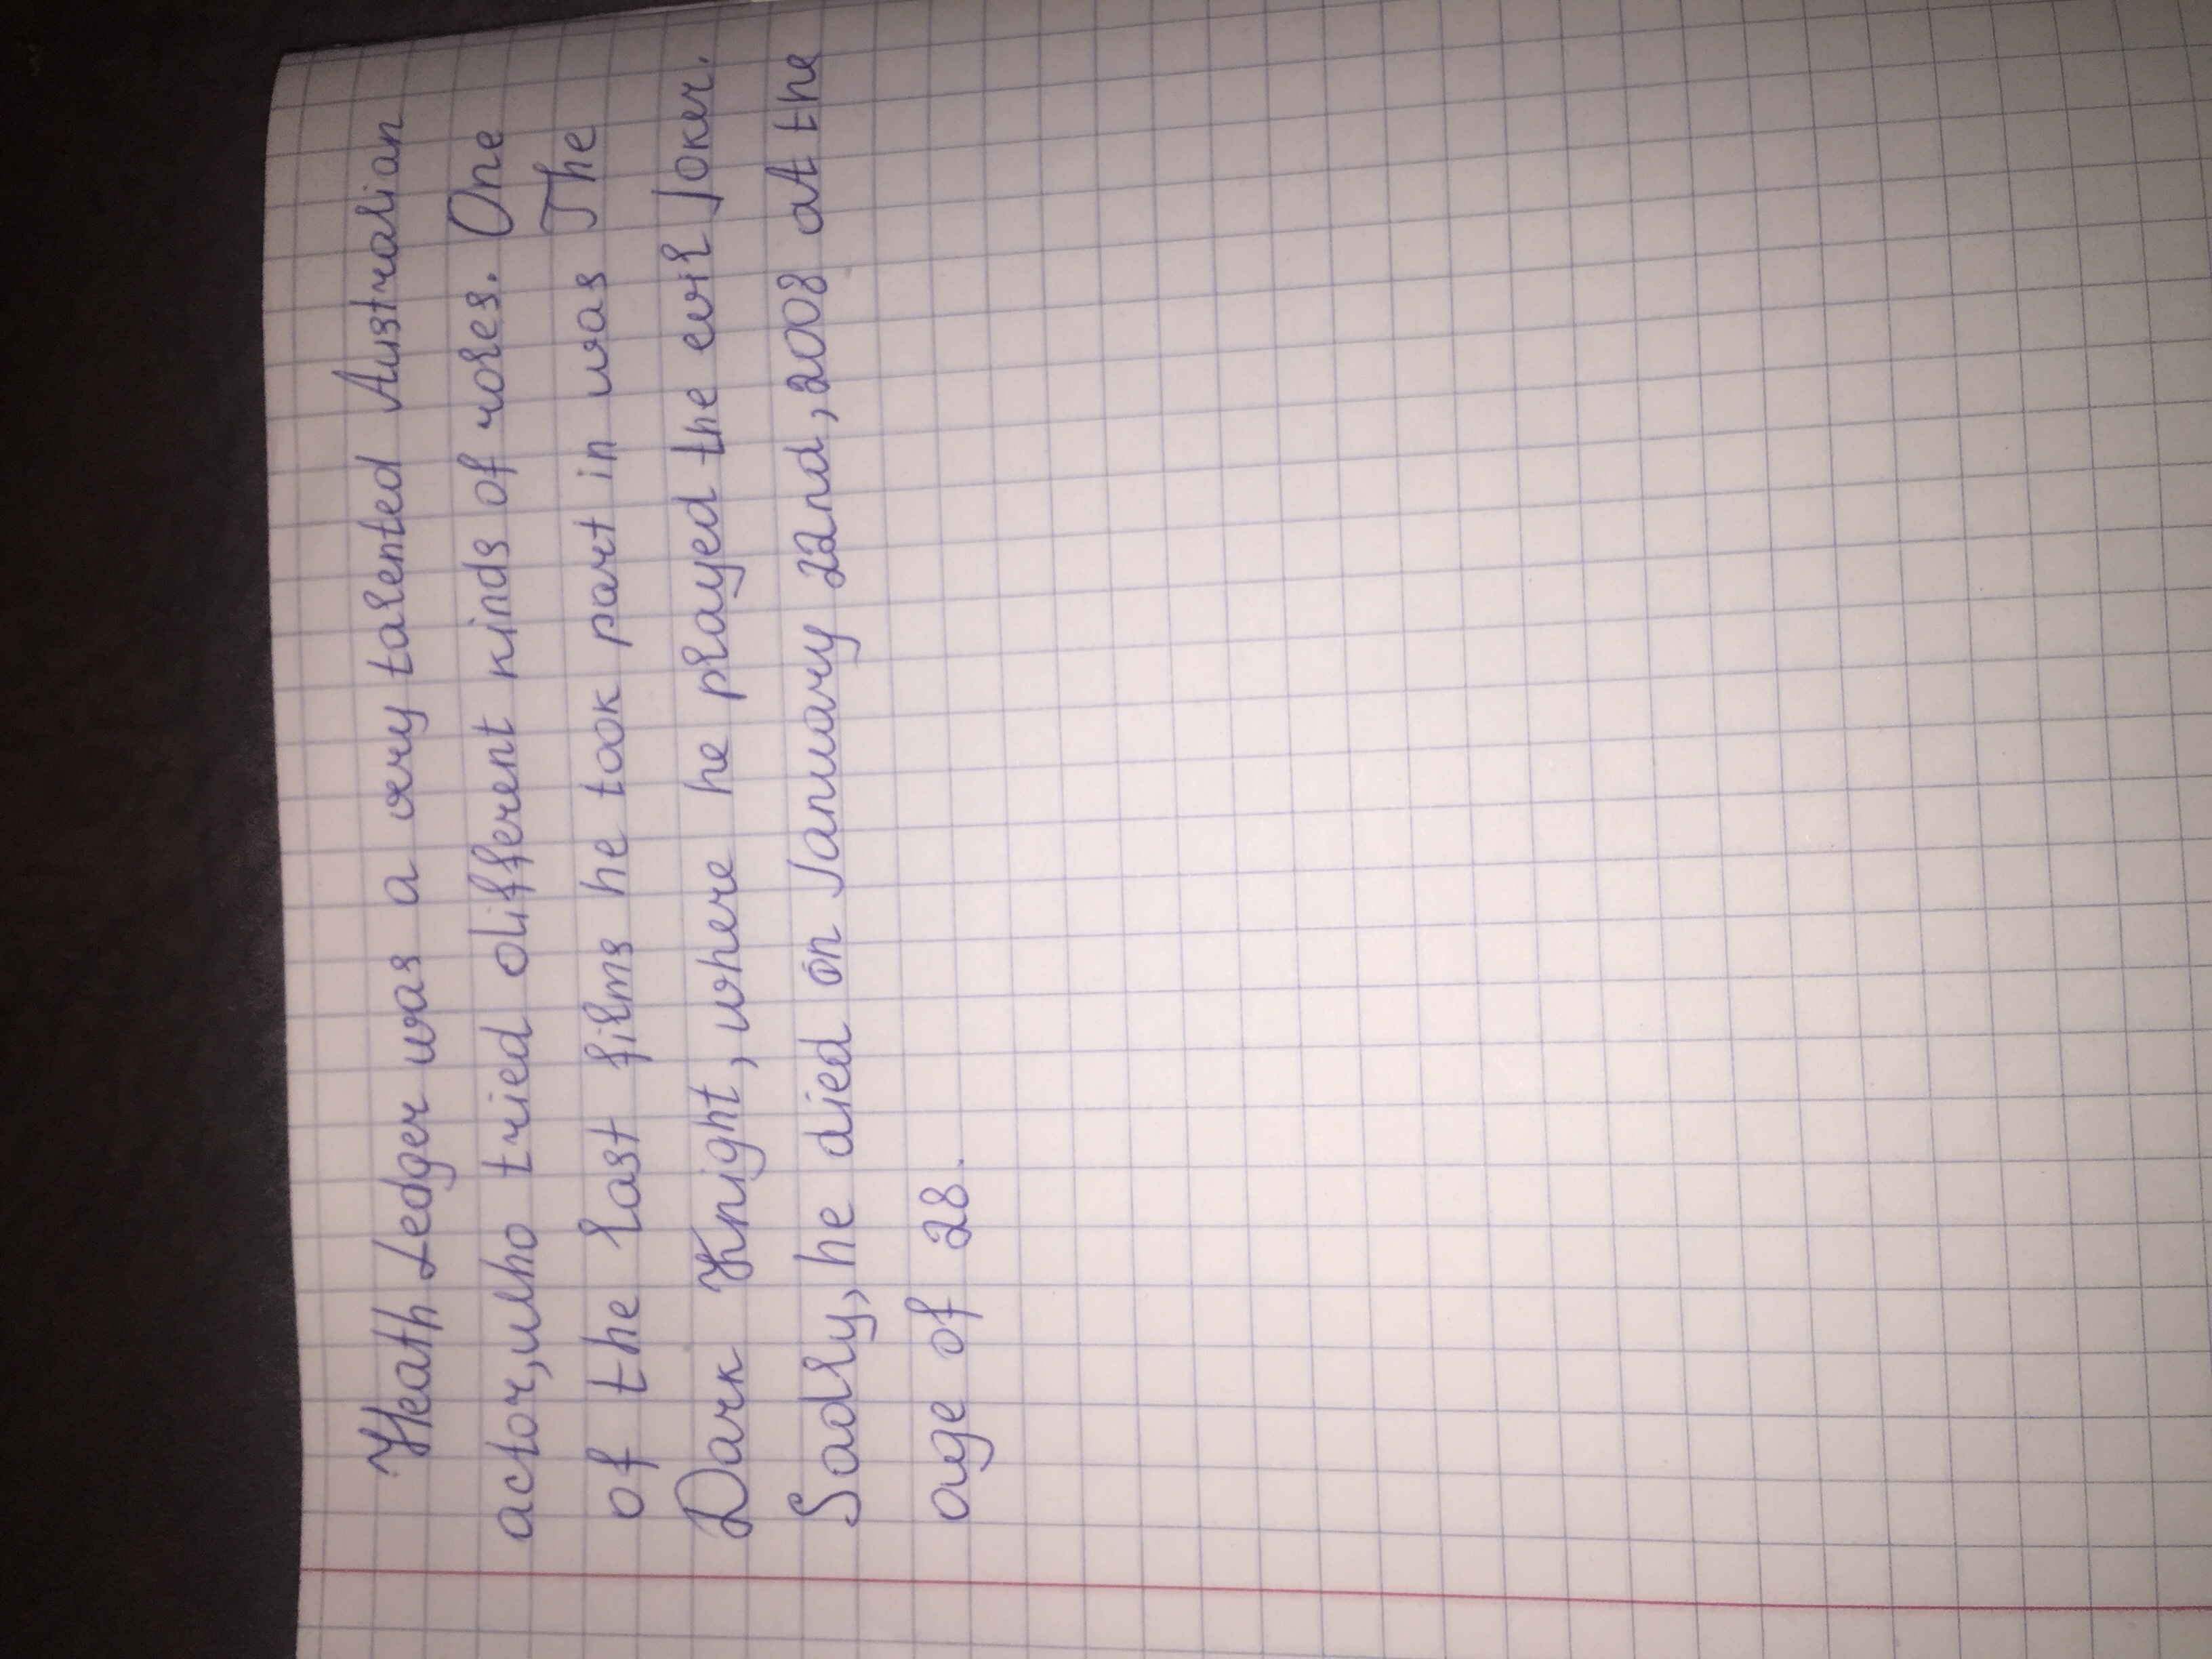 Heath Ledger was a very talented Australian
actor, who tried different kinds of roles. One
of the last films he took part in was The
Dark Knight, where he played the evil Joker.
Sadly, he died on January 22nd, 2008 at the
age of 28.